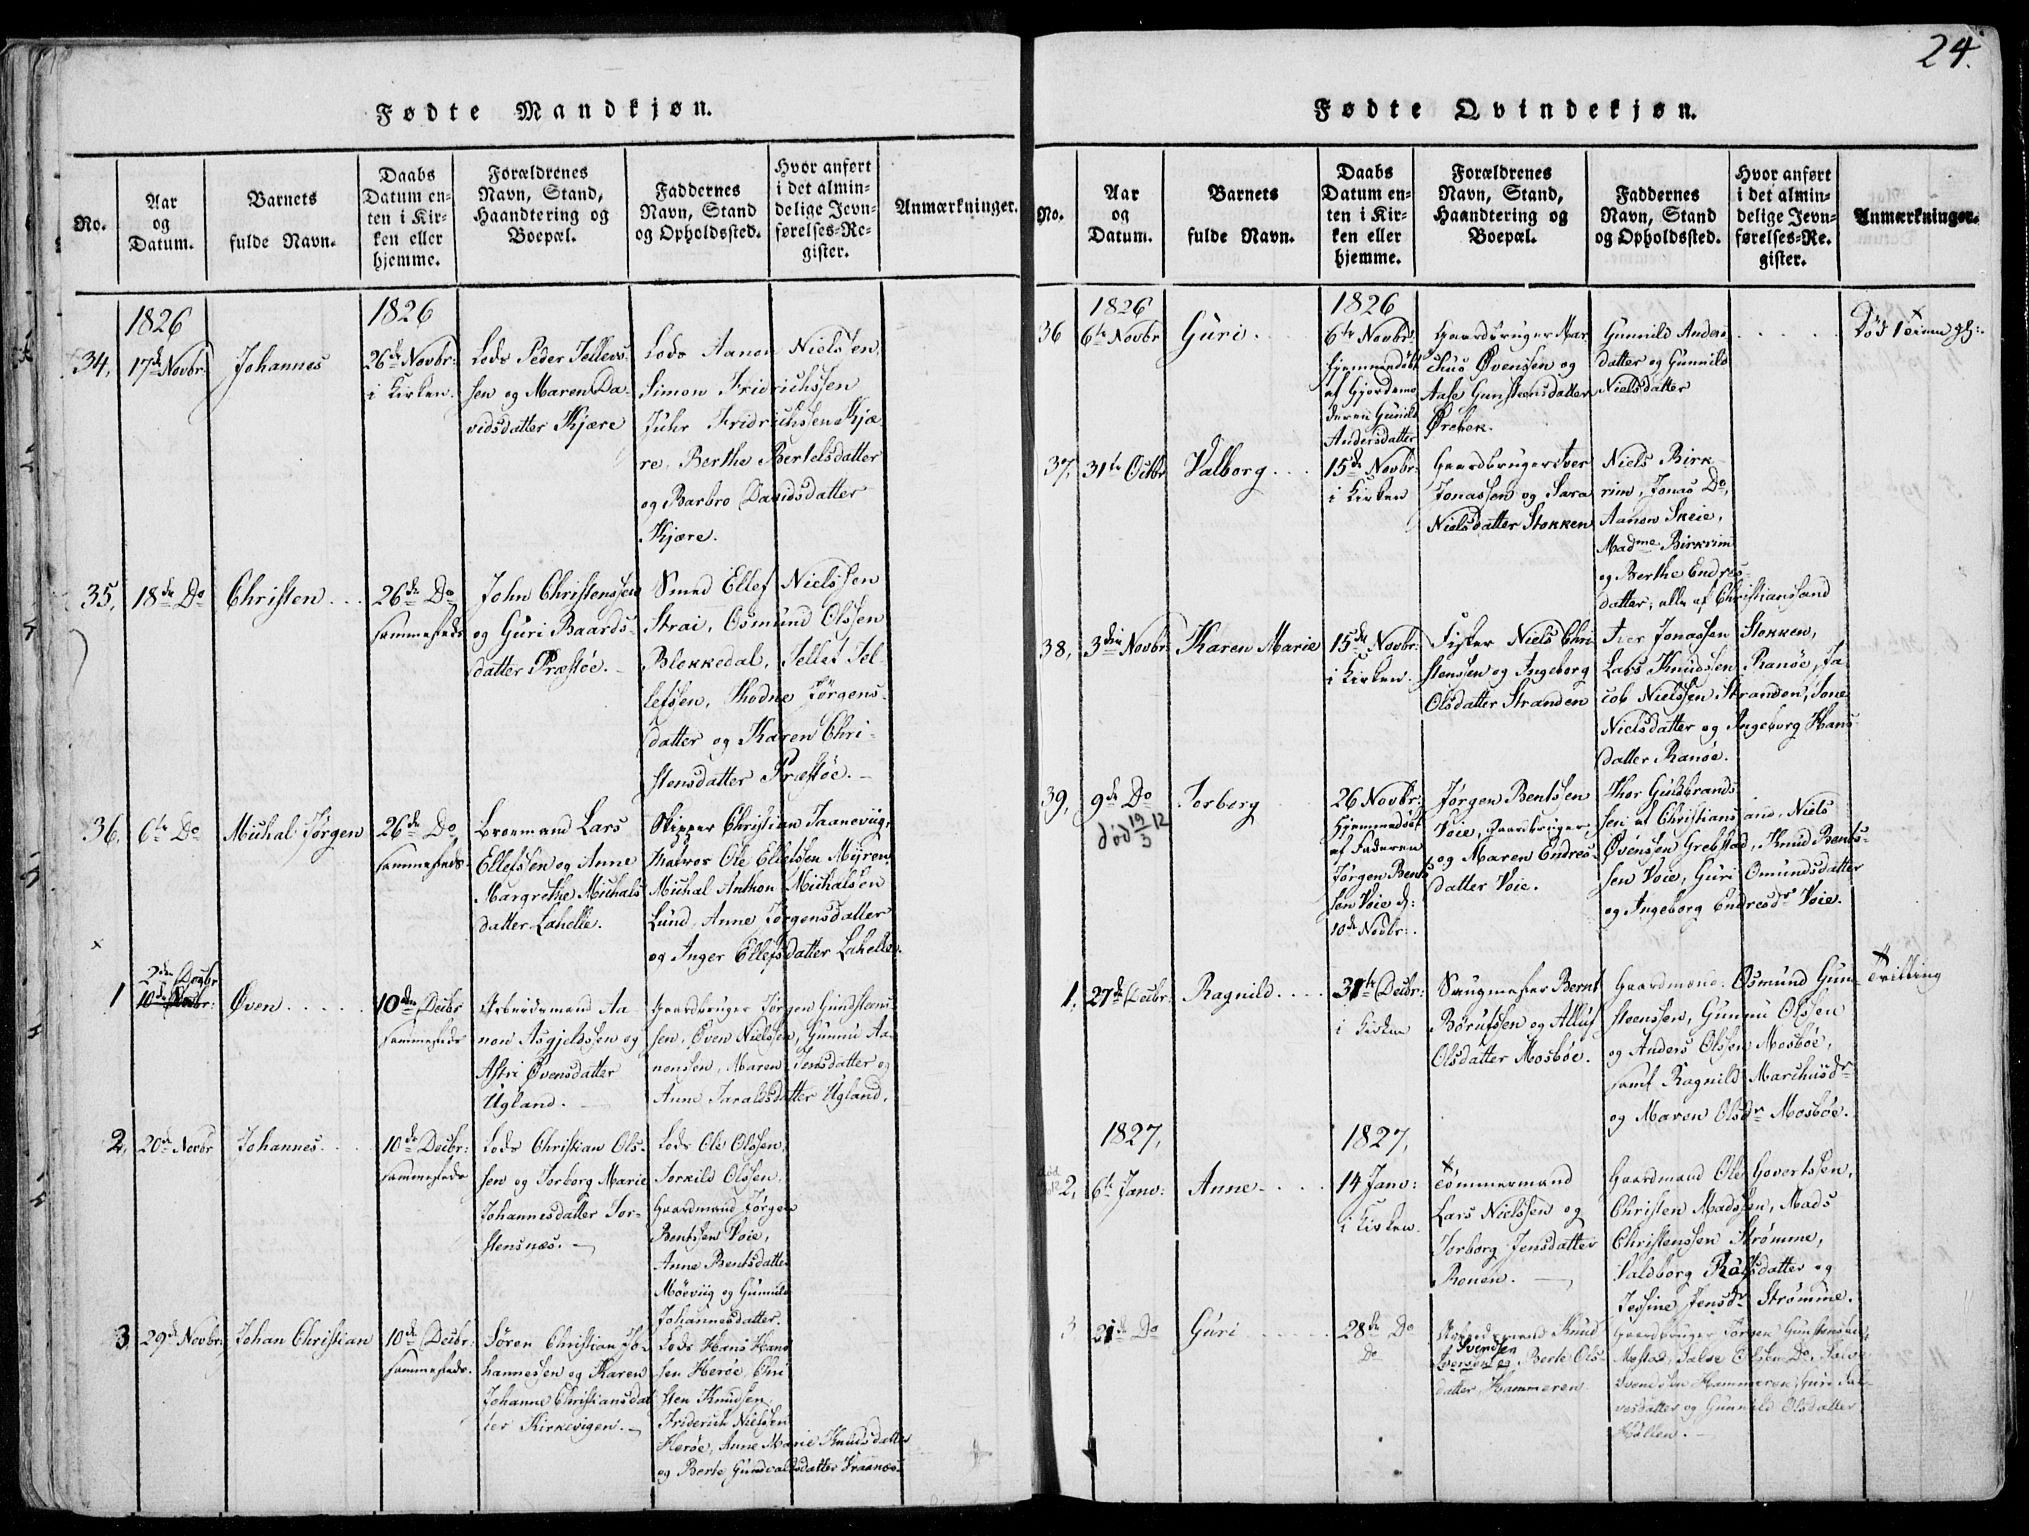 24.
Fødte Mandkjøn.
No.
Aar
og
Datum.
Barnets
fulde Navn.
Daabs
Datum en-
ten i Kir-
ken eller
hjemme.
Forældrenes
Navn, Stand,
Haandtering og
Boepæl.
Faddernes
Navn, Stand
og Opholdssted.
Hvor anført
i det almin-
delige Jevn-
førelses-Re-
gister.
Anmærkninger.
1826
1826
34,
17de Novbr:
Johannes
26de Novbr:
i Kirken.
Lods Peder Tellevs-
sen og Maren Da-
vidsdatter Kjære
Lods Aanon Nielssen
Simon Fridrichssen
Juhr Fridrichssen Kjæ
re, Berthe Bertelsdatter
og Barbro Davidsdatter
Kjære.
35,
18de Do
Christen
26de Do
sammesteds
John Christenssen
og Guri Baards-
datter Præstøe.
Smed Ellef Nielssen
Strai, Osmund Olssen
Blekkedal, Tellef Tel-
lefsen, Thodne Jørgens-
datter og Karen Chri-
stensdatter Præstøe.
36,
6te Do
Michal Jørgen
26de Do
sammesteds.
Broemand Lars
Ellefssen og Anne
Margrethe Michals
datter Lahelle.
Skipper Christian Taaneviig,
Matros Ole Ellefssen Myren
Michal Anthon Michalsen
Lund, Anne Jørgensdatter
og Inger Ellefsdatter Lahelle.
1
2den Decbr
10de
Øven
10den Decbr
sammesteds
Arbeidsmand Aa
non Asgjeldssen og
Astri Øvensdatter
Ugland.
Gaardbruger Jørgen Gundsteens-
sen, Øven Nielssen, Gunnu Aa-
nonsen, Maren Jensdatter og
Anne Taraldsdatter Ugland.
2,
20de Novbr
Johannes
10de Decbr:
sammesteds
Lods Christian Ols-
sen og Torborg Marie
Johannesdatter Tor-
stensnæs.
Lods Ole Olssen,
Torkild Olssen,
Gaardmand Jørgen
Bentssen Voie,
Anne Bentsdatter
Møeviig og Gunnild
Johannesdatter.
3,
29de Novbr:
Johan Christian
10de Decbr:
sammesteds.
Søren Christian Jo-
hannessen og Karen
Johanne Christiansdat
ter Kirkevigen.
Lods Hans Hans
sen Herøe, Chri
sten Knudsen
Friderich Nielssen
Herøe, Anne Marie Knudsdatter
og Berte Gundvaldsdatter Fraanæs.
Fødte Qvindekjøn.
No.
Aar
og
Datum.
Barnets
fulde Navn.
Daabs
Datum en-
ten i Kir-
ken eller
hjemme.
Forældrenes
Navn, Stand,
Haandtering og
Boepæl.
Faddernes
Navn, Stand
og Opholdssted.
Hvor anført
i det almin-
delige Jevn-
førelses-Re-
gister.
Anmærkninger.
1826
1826
36
6te Novbr
Guri
6te Novbr:
hjemmedøbt
af Gjordemo
deren Gunild
Andersdatter
Gaardbruger Mar
chus Øvensen og
Aase Gunstensdatter
Ørebek.
Gunnild Anders
datter og Gunnild
Nielsdatter
Død 1 Time gl:
37,
31te Octbr
Valborg
15de Novbr:
i Kirken
Gaardbruger Iver
Jonassen og Sara
Nielsdatter Stokken
Niels Birk-
rim, Jonas Do,
Aanon Skeie,
Madme Birkrim
og Berthe Endres-
datter, alle af Christiansand
38,
3die Novbr:
Karen Marie
15de Novbr:
i Kirken.
Fisker Niels Chri
stenssen og Ingeborg
Olsdatter Stranden
Iver Jonassen Stokken,
Lars Knudssen Ranøe, Ja-
cob Nielssen Stranden, Tone
Nielsdatter og Ingeborg Hans-
datter Ranøe.
39,
9de Do
død 19/3 12
Torborg
26 Novbr:
hjemmedøbt
af Faderen
Jørgen Bents
søn Voie d:
10de Novbr:
Jørgen Bentssen
Voie, Gaardbruger
og Maren Endres-
datter Voie.
Thor Guldbrands
sen af Christiansand, Niels
Øvensen Grebstad, Knud Bents-
sen Voie, Guri Omundsdatter
og Ingeborg Endresdr Voie.
1,
27de Decbr:
Ragnild
31te Decbr:
i Kirken
Saugmester Bernt
Børufssen og Alluf
Olsdatter Mosbøe.
Gaardmænd: Osmund Gun-
steenssen, Gunnu Olssen
og Anders Olssen Mosbøe,
samt Ragnild Marchusdr
og Maren Olsdr Mosbøe.
Tvilling
1827,
1827,
2,
6te Janv:
Anne
14 Janv:
i Kirken.
Tømmermand
Lars Nielssen og
Torborg Jensdatter
Ronen.
Gaardmand Ole Govertssen,
Christen Madssen, Mads
Christenssen Strømme,
Valdborg Rolfsdatter og
Jessine Jensdr Strømme.
3
21de Do
Guri
28de Do
Do
Knud
Svendsen
og Berte Ols-
datter Hammeren
Gaardbruger Jørgen Gunstensen
Mæstad, Salve Olsen Do, Salve
Svendsen Hammeren, Guri Sal-
vesdatter og Gunnild Olsdatter